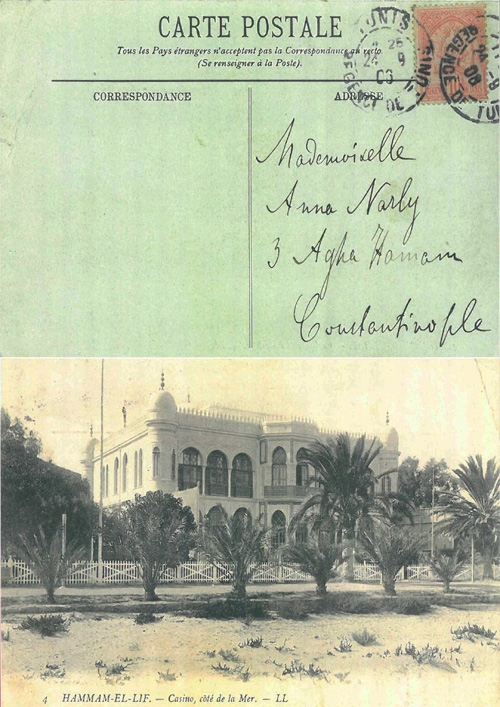 CARTE POSTALE
Tous les Pays étrangers n'acceptent pas la Correspondance au recto
(Se renseigner à la Poste).
CORRESPONDANCE
ADRESSE
TUNIS
REGENCE DE
Mademoiselle
Anna Narly
3 Agha Hamam
Constantinople
4 HAMMAM-EL-LIF. — Casino, côté de la Mer. — LL